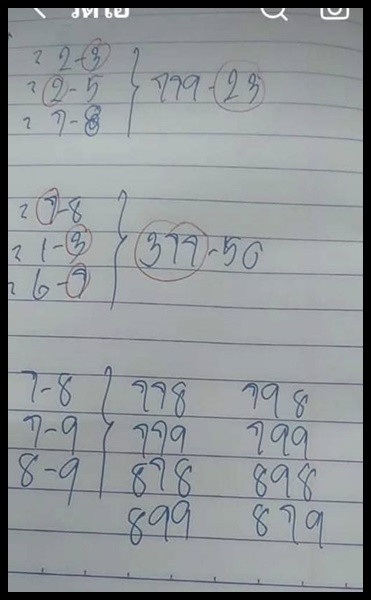 วิดีโอ
= 2-3
= 2-5 } 779-23
= 7-8
= 7-8
= 1-3 } 377-56
= 6-7
7-8 } 778 798
7-9 779 799
8-9 878 898
899 879